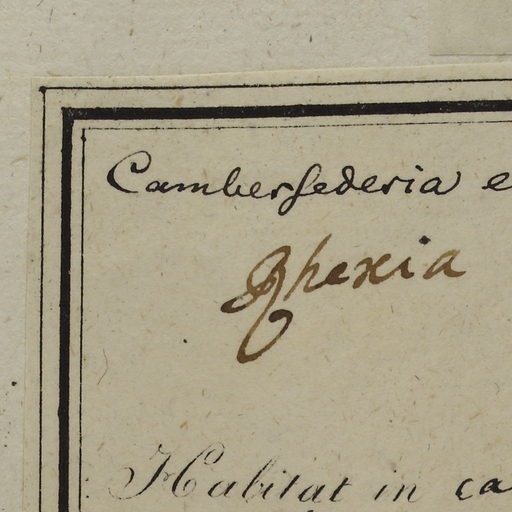 Cambessederia e
Rhexia
Habitat in ca